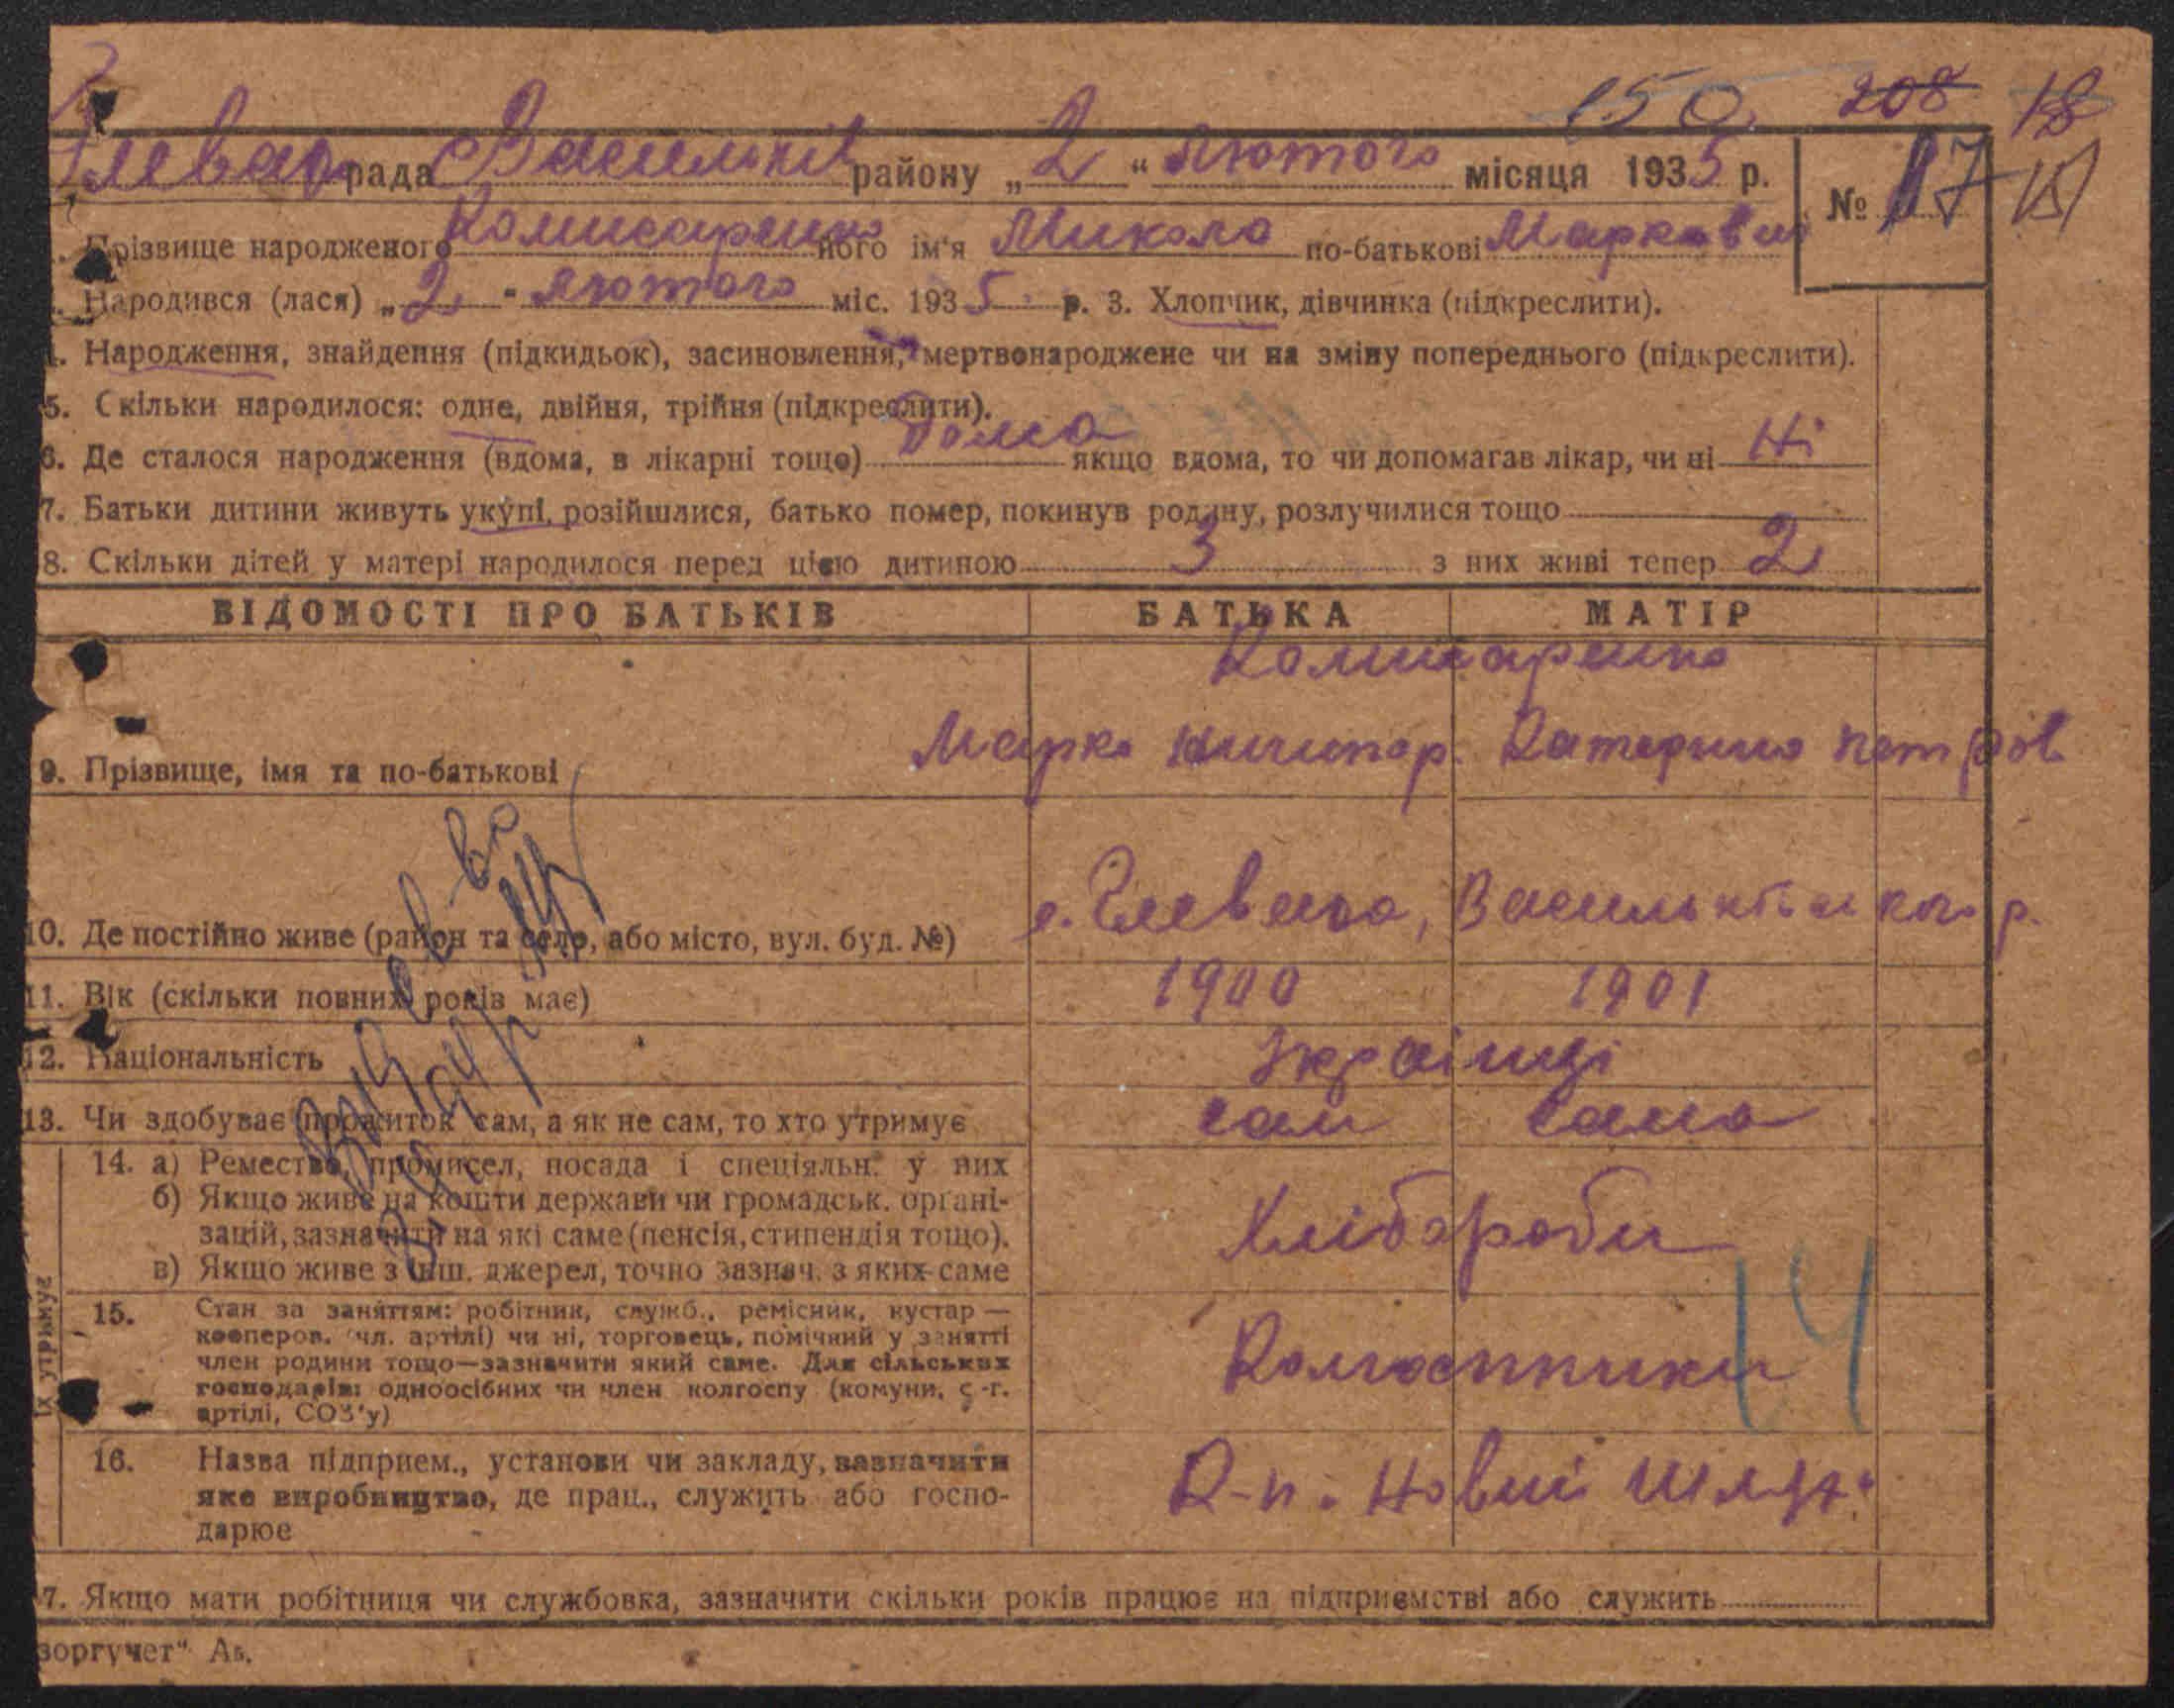 150. 208 18
Глевах рада Васильків району „2“ лютого місяця 1935 р. № 17 15
Прізвище народженого Комисаренко його ім'я Микола по-батькові Маркович
Народився (лася) „2“ лютого міс. 1935 р. 3. Хлопчик, дівчинка (підкреслити).
4. Народження, знайдення (підкидьок), засиновлення, мертвонароджене чи на зміну попереднього (підкреслити).
5. Скільки народилося: одне, двійня, трійня (підкреслити).
6. Де сталося народження (вдома, в лікарні тощо) Дома якщо вдома, то чи допомагав лікар, чи ні Ні
7. Батьки дитини живуть укупі, розійшлися, батько помер, покинув родину, розлучилися тощо
8. Скільки дітей у матері народилося перед цією дитиною 3 з них живі тепер 2
ВІДОМОСТІ ПРО БАТЬКІВ БАТЬКА МАТІР
Комисаренко
9. Прізвище, імя та по-батькові Марко Ничипор. Катерина Петров
10. Де постійно живе (район та село, або місто, вул. буд. №) с. Глеваха, Васильківського р.
11. Вік (скільки повних років має) 1900 1901
12. Національність Українці
13. Чи здобуває прожиток сам, а як не сам, то хто утримує сам сама
14. а) Ремество, промисел, посада і спеціяльн. у них
б) Якщо живе на кошти держави чи громадськ. органі-
зацій, зазначити на які саме (пенсія, стипендія тощо).
в) Якщо живе з інш. джерел, точно зазнач. з яких саме
Хлібороби
15. Стан за заняттям: робітник, служб., ремісник, кустар —
кооперов. (чл. артілі) чи ні, торговець, помічний у занятті
член родини тощо—зазначити який саме. Для сільських
господарів: одноосібних чи член колгоспу (комуни, с.-г.
артілі, СОЗ'у)
Колгоспники
14
16. Назва підприєм., установи чи закладу, зазначити
яке виробництво, де прац., служить або госпо-
дарює
К-п. Новий шлях.
їх утримує
7. Якщо мати робітниця чи службовка, зазначити скільки років працює на підприємстві або служить
зоргучет“ Ав.